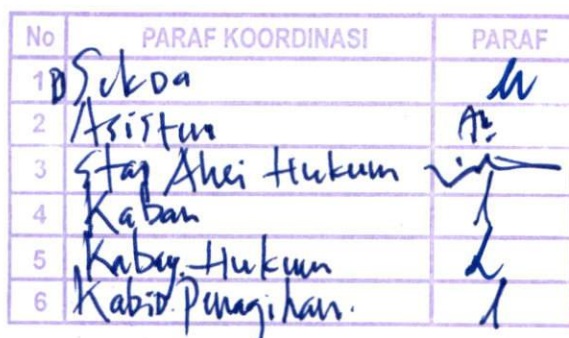 No PARAF KOORDINASI PARAF
1 Sekda
2 Asisten
3 Staf Ahli Hukum
4 Kaban
5 Kabag. Hukum
6 Kabid. Penagihan.